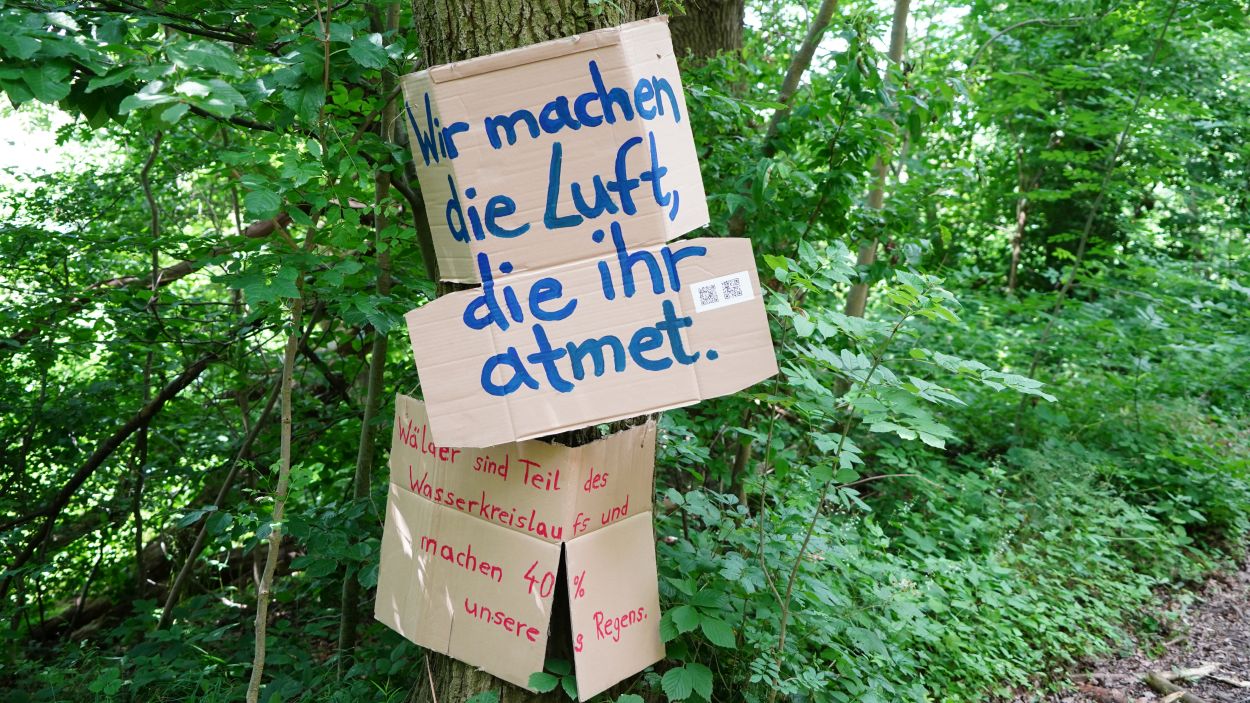 Wir machen
die Luft,
die ihr
atmet.
Wälder sind Teil des
Wasserkreislaufs und
machen 40 %
unseres Regens.